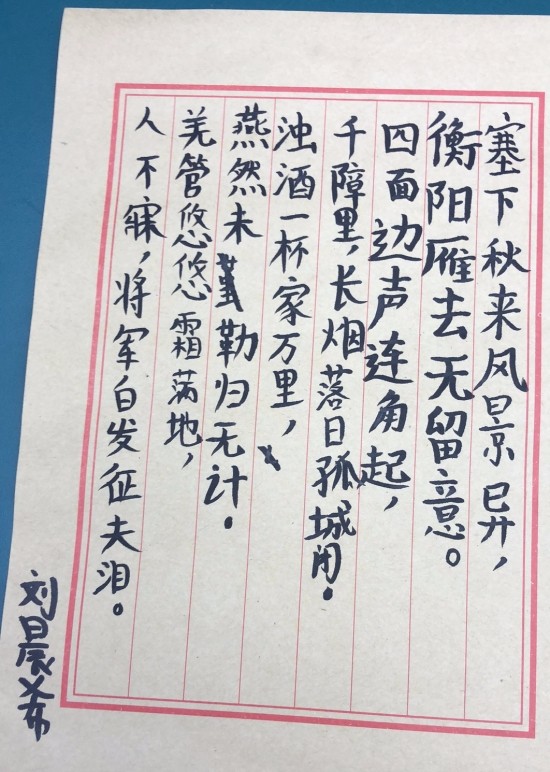 塞下秋来风景异，
衡阳雁去无留意。
四面边声连角起，
千障里，长烟落日孤城闭。
浊酒一杯家万里，
燕然未勒归无计。
羌管悠悠霜满地，
人不寐，将军白发征夫泪。
刘晨希